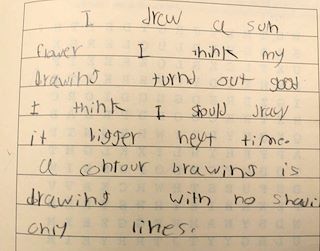 I drew a sun
flower I think my
drawing turnd out good
I think I sould draw
it bigger next time.
a contour drawing is
drawing with no shadi
only lines.